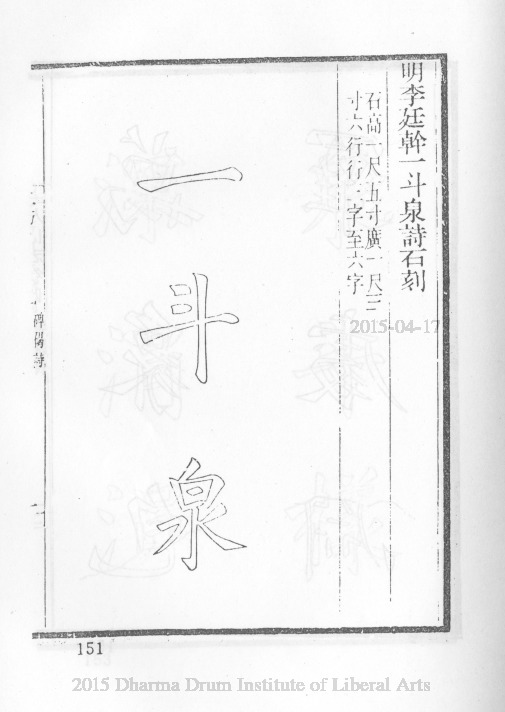 明李廷幹一斗泉詩石刻
石高一尺五寸廣一尺三
寸六行行三字至六字
一斗泉
2015-04-17
151
2015 Dharma Drum Institute of Liberal Arts